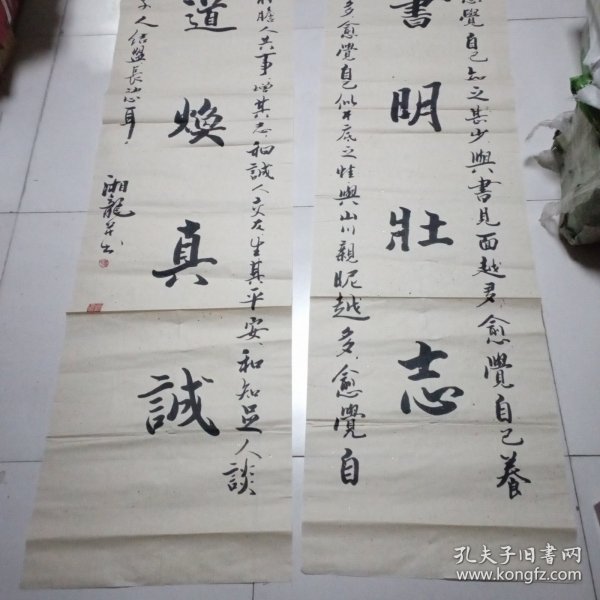 愈覺自己知之甚少與書見面越多愈覺自己養
書明壯志
多愈覺自己似井底之蛙與山川親昵越多愈覺自
人共事增其忍和誠人交友生其平安和知足人談
道煥真誠
人結盟長志耳
湘龍
孔夫子旧书网
www.kongfz.com